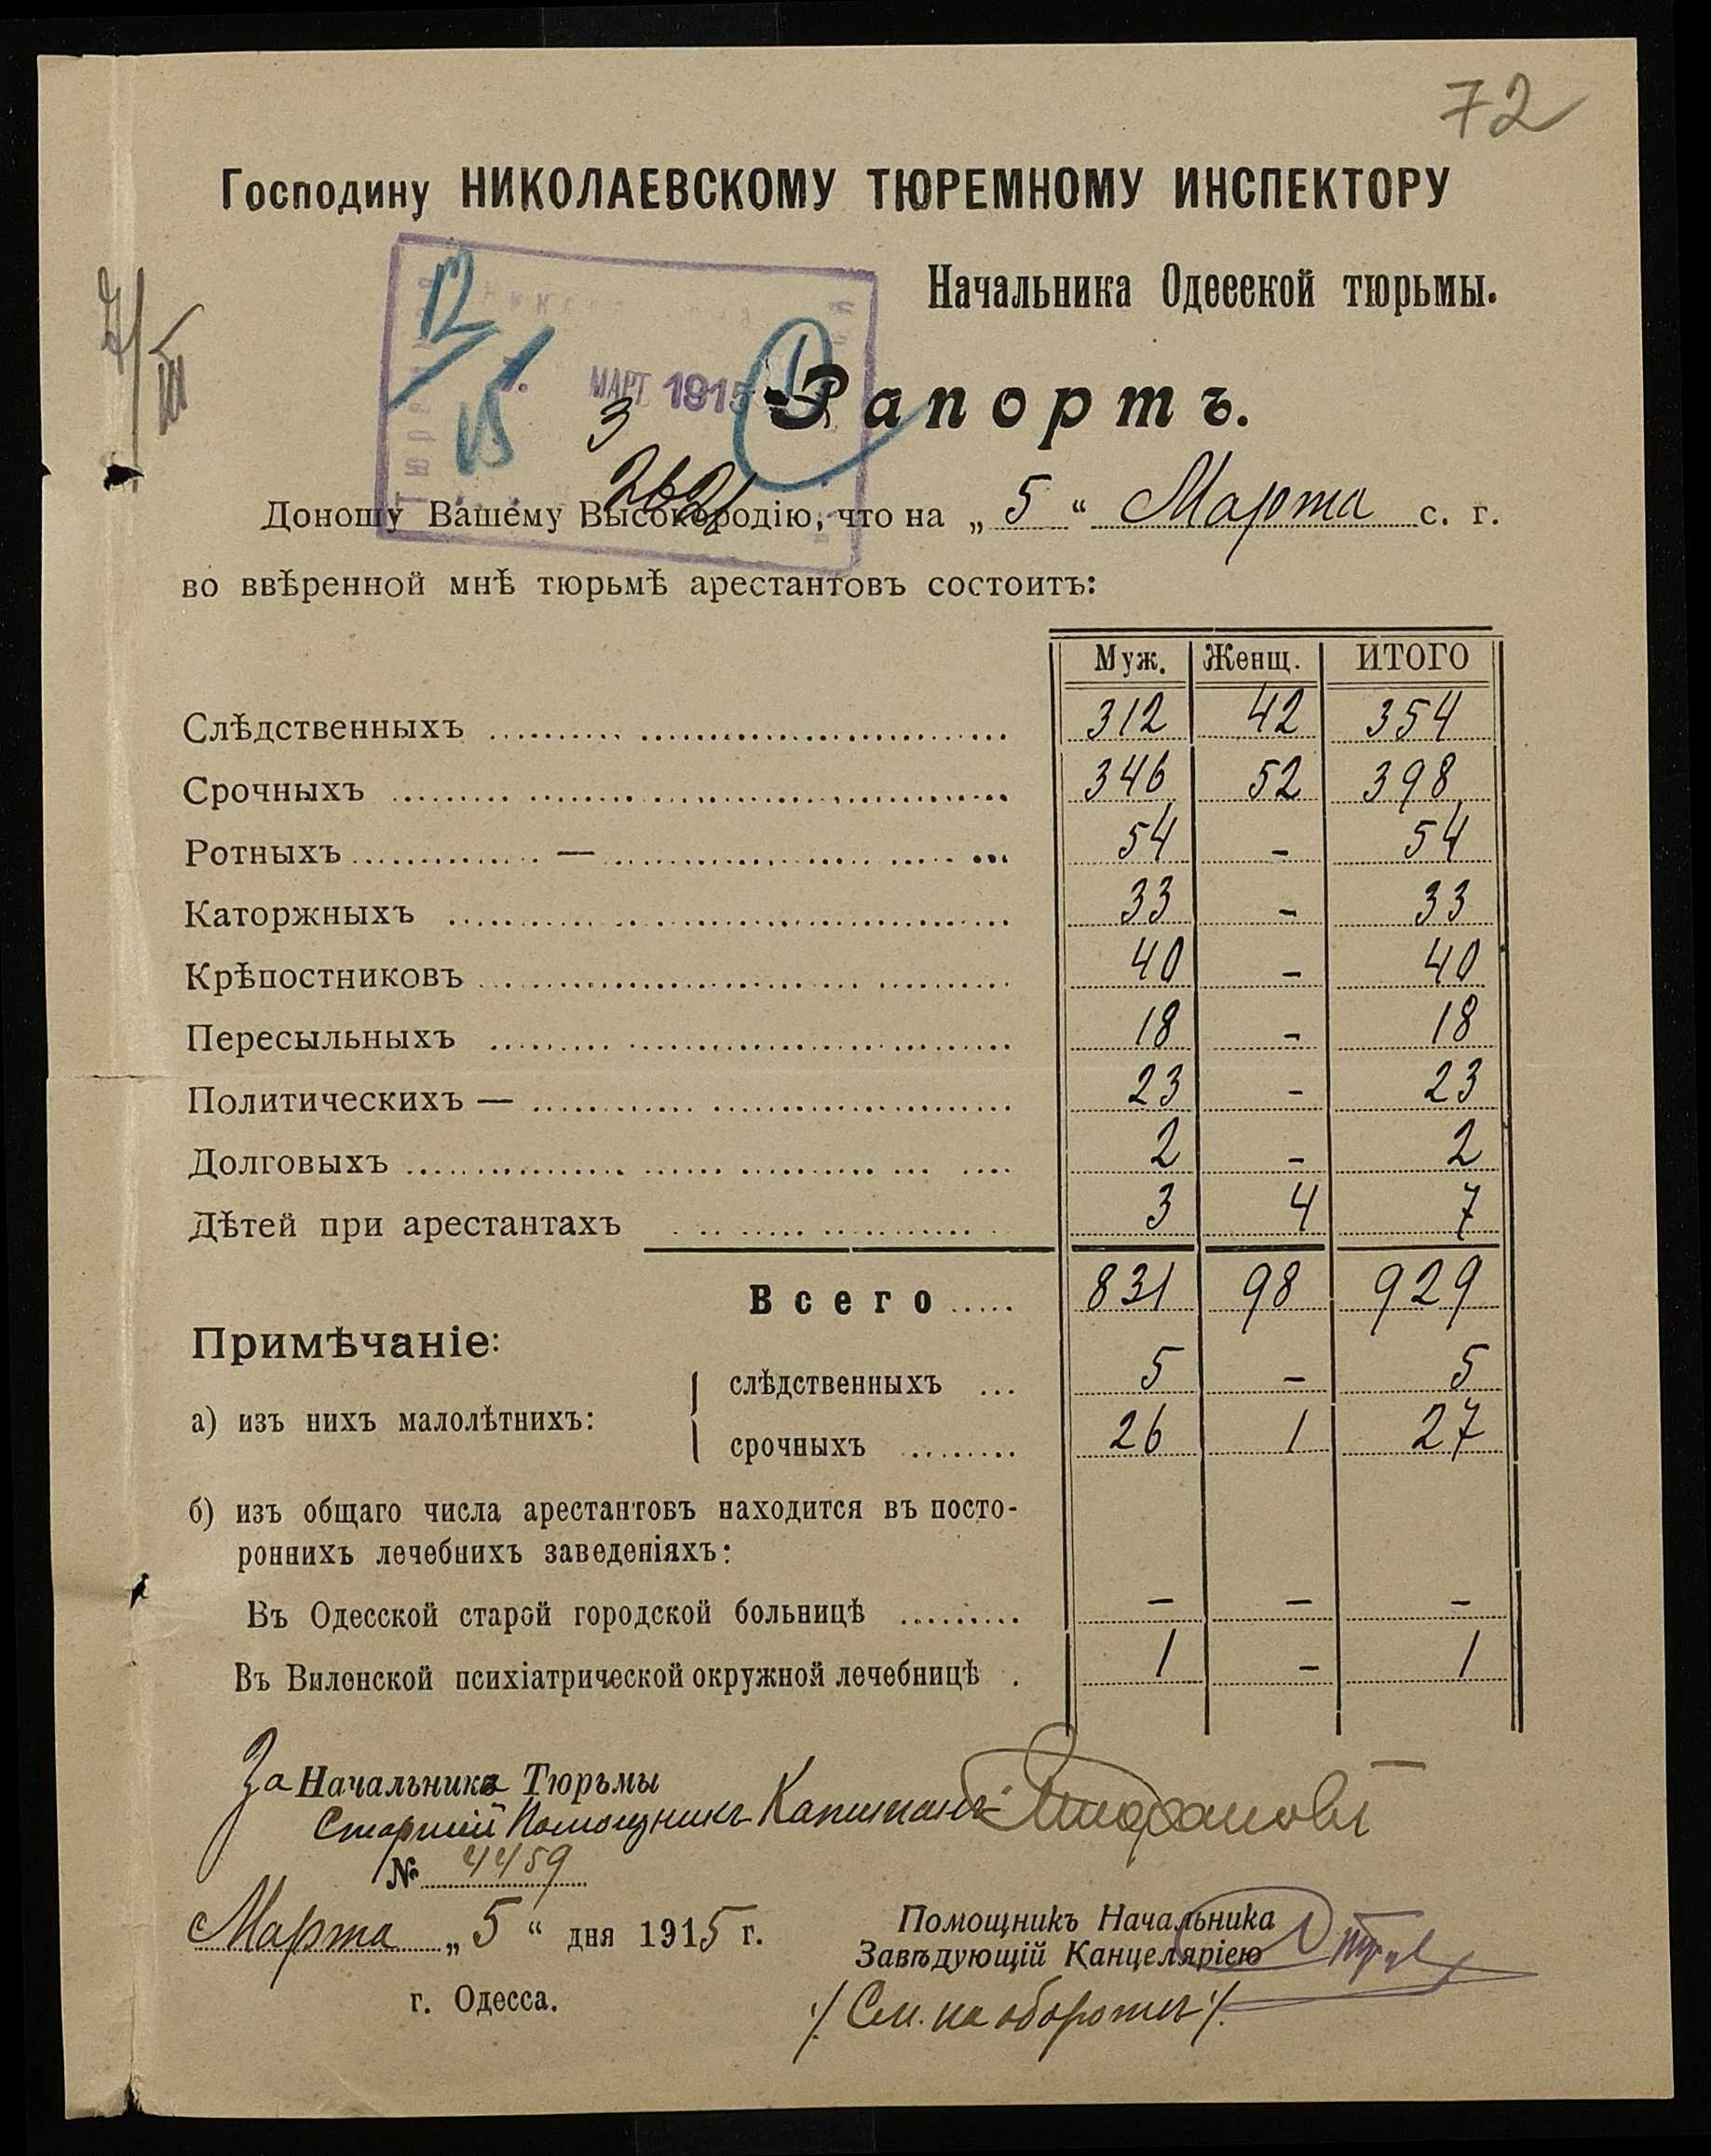 72
Господину НИКОЛАЕВСКОМУ ТЮРЕМНОМУ ИНСПЕКТОРУ
Начальника Одесской тюрьмы.
7/III
12/15
МАРТ 1915
Рапортъ.
3
262
Доношу Вашему Высокородію, что на „ 5 “ Марта с. г.
во ввѣренной мнѣ тюрьмѣ арестантовъ состоитъ:
Муж. Женщ. ИТОГО
Слѣдственныхъ 312 42 354
Срочныхъ 346 52 398
Ротныхъ — 54 - 54
Каторжныхъ 33 - 33
Крѣпостниковъ 40 - 40
Пересыльныхъ 18 - 18
Политическихъ — 23 - 23
Долговыхъ 2 - 2
Дѣтей при арестантахъ 3 4 7
Всего 831 98 929
Примѣчаніе:
слѣдственныхъ 5 - 5
а) изъ нихъ малолѣтнихъ:
срочныхъ 26 1 27
б) изъ общаго числа арестантовъ находится въ посто-
роннихъ лечебнихъ заведеніяхъ:
Въ Одесской старой городской больницѣ - - -
Въ Виленской психіатрической окружной лечебницѣ 1 - 1
За Начальника Тюрьмы
Старшій Помощникъ Капитанъ
№ 4459
Марта „ 5 “ дня 1915 г.
Помощникъ Начальника
Завѣдующій Канцеляріею
г. Одесса.
·/. См. на оборотѣ ·/.